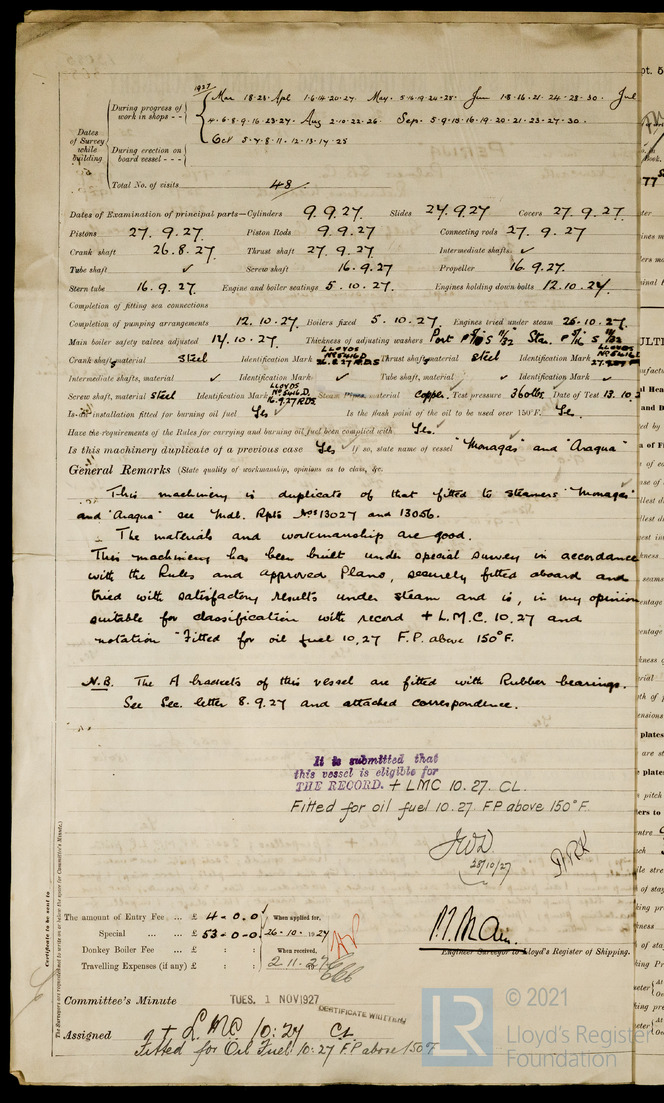 1927
During progress of work in shops - - Mar 18·28· Apl 1·6·14·20·27· May· 5·16·19·24·25· Jun 1·8·16·21·24·28·30· Jul
4·6·8·9·16·23·27· Aug 2·10·22·26· Sep. 5·9·13·16·19·20·21·23·27·30·
Dates of Survey while building
During erection on board vessel - - - Oct 5·7·8·11·12·13·17·25
Total No. of visits 48
Dates of Examination of principal parts—Cylinders 9.9.27. Slides 24.9.27 Covers 27.9.27.
Pistons 27.9.27. Piston Rods 9.9.27 Connecting rods 27.9.27
Crank shaft 26.8.27 Thrust shaft 27.9.27 Intermediate shafts ✓
Tube shaft ✓ Screw shaft 16.9.27 Propeller 16.9.27.
Stern tube 16.9.27 Engine and boiler seatings 5.10.27 Engines holding down bolts 12.10.27
Completion of fitting sea connections
Completion of pumping arrangements 12.10.27 Boilers fixed 5.10.27 Engines tried under steam 25.10.27.
Main boiler safety valves adjusted 14.10.27 Thickness of adjusting washers Port
Crank shaft material Steel Identification Mark LLOYDS No 5416 D. 26.8.27 RDS Thrust shaft material steel Identification Mark LLOYDS No 5416
Intermediate shafts, material ✓ Identification Mark ✓ Tube shaft, material ✓ Identification Mark ✓
Screw shaft, material steel Identification Mark LLOYDS No 5416 D. 16.9.27 RDS Steam Pipes, material Copper Test pressure 360 lbs Date of Test 13.10.2
Is an installation fitted for burning oil fuel Yes ✓ Is the flash point of the oil to be used over 150°F. Yes.
Have the requirements of the Rules for carrying and burning oil fuel been complied with Yes.
Is this machinery duplicate of a previous case Yes ✓ If so, state name of vessel "Monagas" and "Aragua"
General Remarks (State quality of workmanship, opinions as to class, &c.
This machinery is duplicate of that fitted to steamers "Monagas"
and "Aragua" see Mdl. Rpts Nos 13027 and 13056.
The materials and workmanship are good.
This machinery has been built under special survey in accordance
with the Rules and approved Plans, securely fitted aboard and
tried with satisfactory results under steam and is, in my opinion
suitable for classification with record + L.M.C. 10,27 and
notation "Fitted for oil fuel 10,27 F.P. above 150°F.
N.B. The A brackets of this vessel are fitted with Rubber bearings.
See Sec. letter 8.9.27 and attached correspondence.
It is submitted that
this vessel is eligible for
THE RECORD. + LMC 10.27. CL.
Fitted for oil fuel 10.27 F.P above 150°F.
28/10/27
Certificate to be sent to
The Surveyors are requested not to write on or below the space for Committee's Minute.
The amount of Entry Fee ... £ 4 - 0 - 0 When applied for,
Special ... £ 53 - 0 - 0 26-10-1927
Donkey Boiler Fee ... £ : : When received,
Travelling Expenses (if any) £ : : 2.11.27
Engineer Surveyor to Lloyd's Register of Shipping.
Committee's Minute TUES. 1 NOV 1927
CERTIFICATE WRITTEN
Assigned + LMC 10:27 CL
Fitted for Oil Fuel 10:27 F.P above 150°F
LR © 2021
Lloyd's Register
Foundation